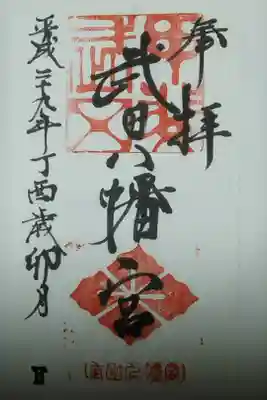 奉拝
武田八幡宮
平成二十九年丁酉歳卯月